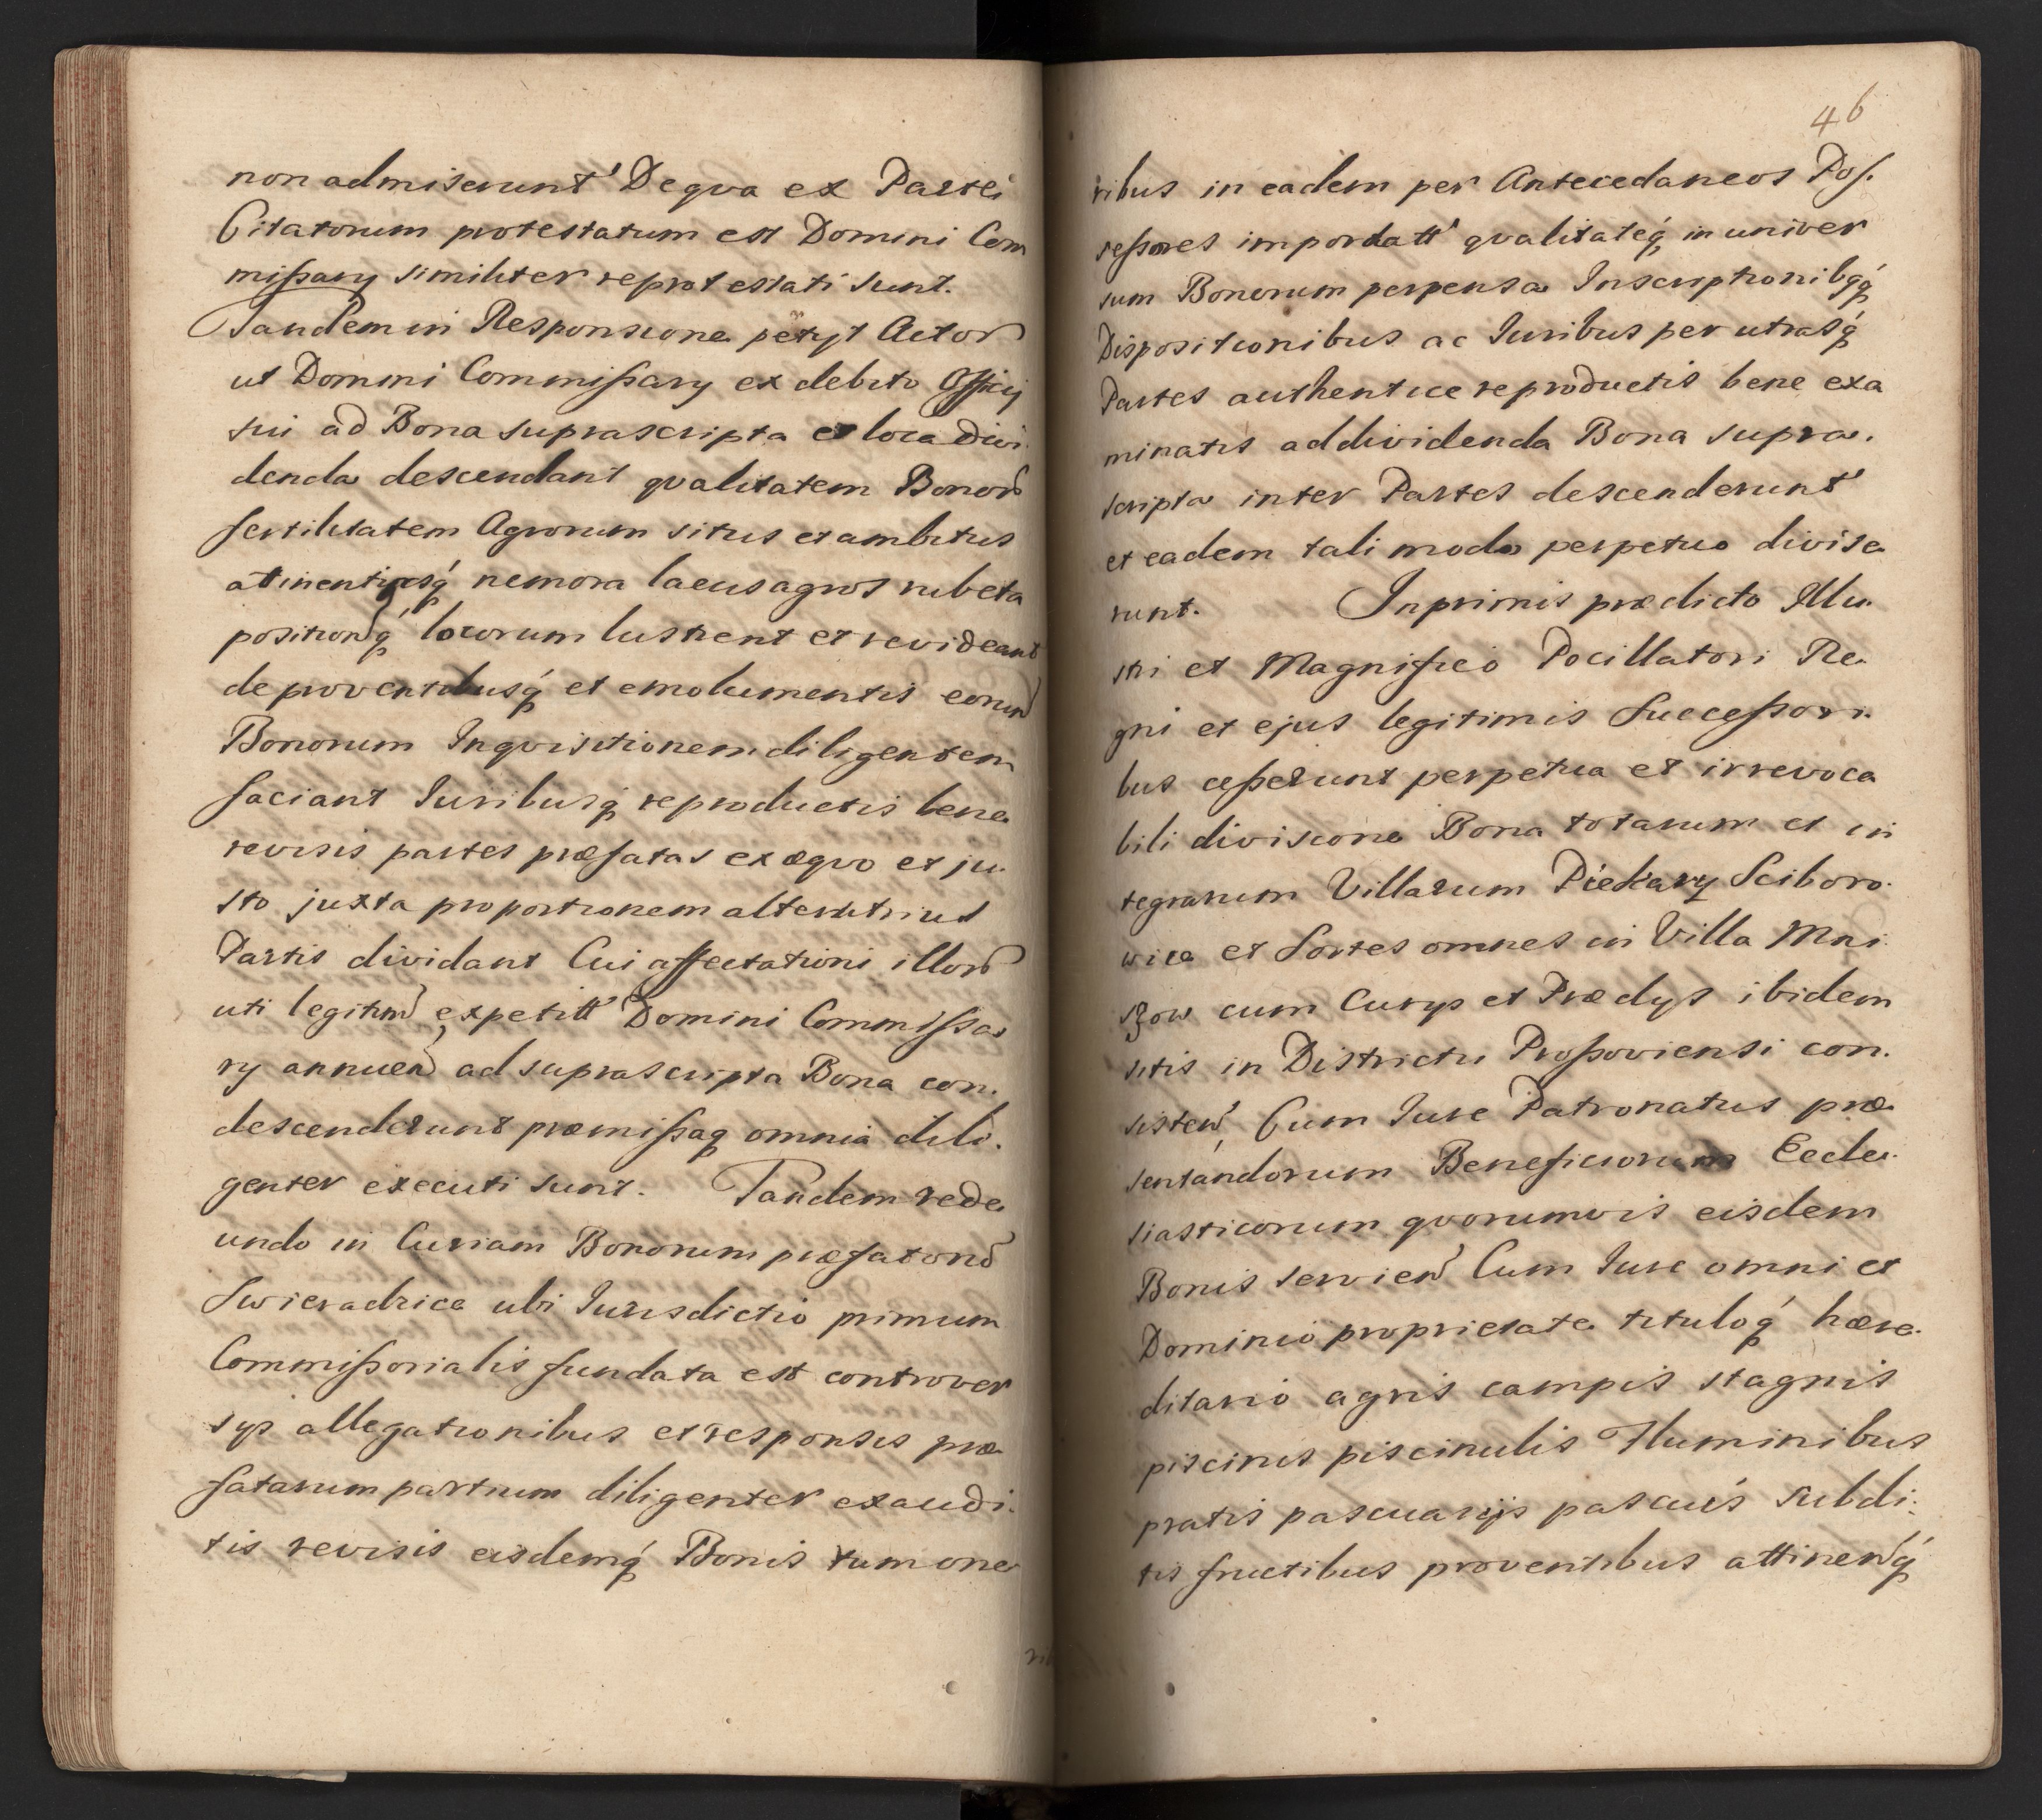 non admiserunt De qva ex Partei
Citatorum protestatum est Domini Com
mißary similiter reprotestati sunt.
Tandem in Responsione petyt Actor
ut Domini Commißary ex debito Officij
sui ad Bona suprascripta et loca divi.
denda descendant qvalitatem Bonor
fertilitatem Agrorum situs et ambitus
atinentiasq́ nemora lacus agros rubeta
positionq́ locorum lustrent et revideant
de proventibusq́ et emolumentis eorund
Bonorum Inqvisitionem diligentem
faciant Juribusq́ reproductis bene
revisis partes præfatas ex æqvo et ju.
sto juxta proportionem alterutrius
Partis dividant Cui affectationi illor
uti legitim expetitt Domini Commißa
ry annuen ad suprascripta Bona con.
descenderunt præmißaq omnia dili.
genter executi sunt. Tandem rede
undo in Curiam Bonorum præfator
Swieradzice ubi Jurisdictio primum
Commißorialis fundata est controver
sys allegationibus et responsis præ
fatarum partium diligenter exaudi.
tis revisis eisdemq́ Bonis tum one
rib
46
ribus in eadem per Antecedaneos Pos.
seßores importatt qvalitateq́ in univer
sum Bonorum perpensa Inscriptionibqq́
Dispositionibus ac Juribus per utrasq́
Partes authentice reproductis bene exa
minatis ad dividenda Bona supra.
scripta inter Partes descenderunt
et eadem tali modo perpetuo divise
runt. Inprimis prædicto Illu.
stri et Magnifico Pocillatori Re.
gni et ejus legitimis Succeßori.
bus ceßerunt perpetua et irrevoca
bili divisione Bona totarum et in
tegrarum Villarum Piekary Sciboro.
wice et Sortes omnes in Villa Mni.
szow cum Curys et Prædys ibidem
sitis in Districtu Proßoviensi con.
sisten, Cum Jure Patronatus præ
sentandorum Beneficiorum Eccle.
siasticorum qvorumvis eisdem
Bonis servien Cum Jure omni et
Dominio proprietate tituloq́ hære.
ditario agris campis stagnis
piscinis piscinulis Fluminibus
pratis pascuarijs pascuis subdi.
tis fructibus proventibus attinenq́